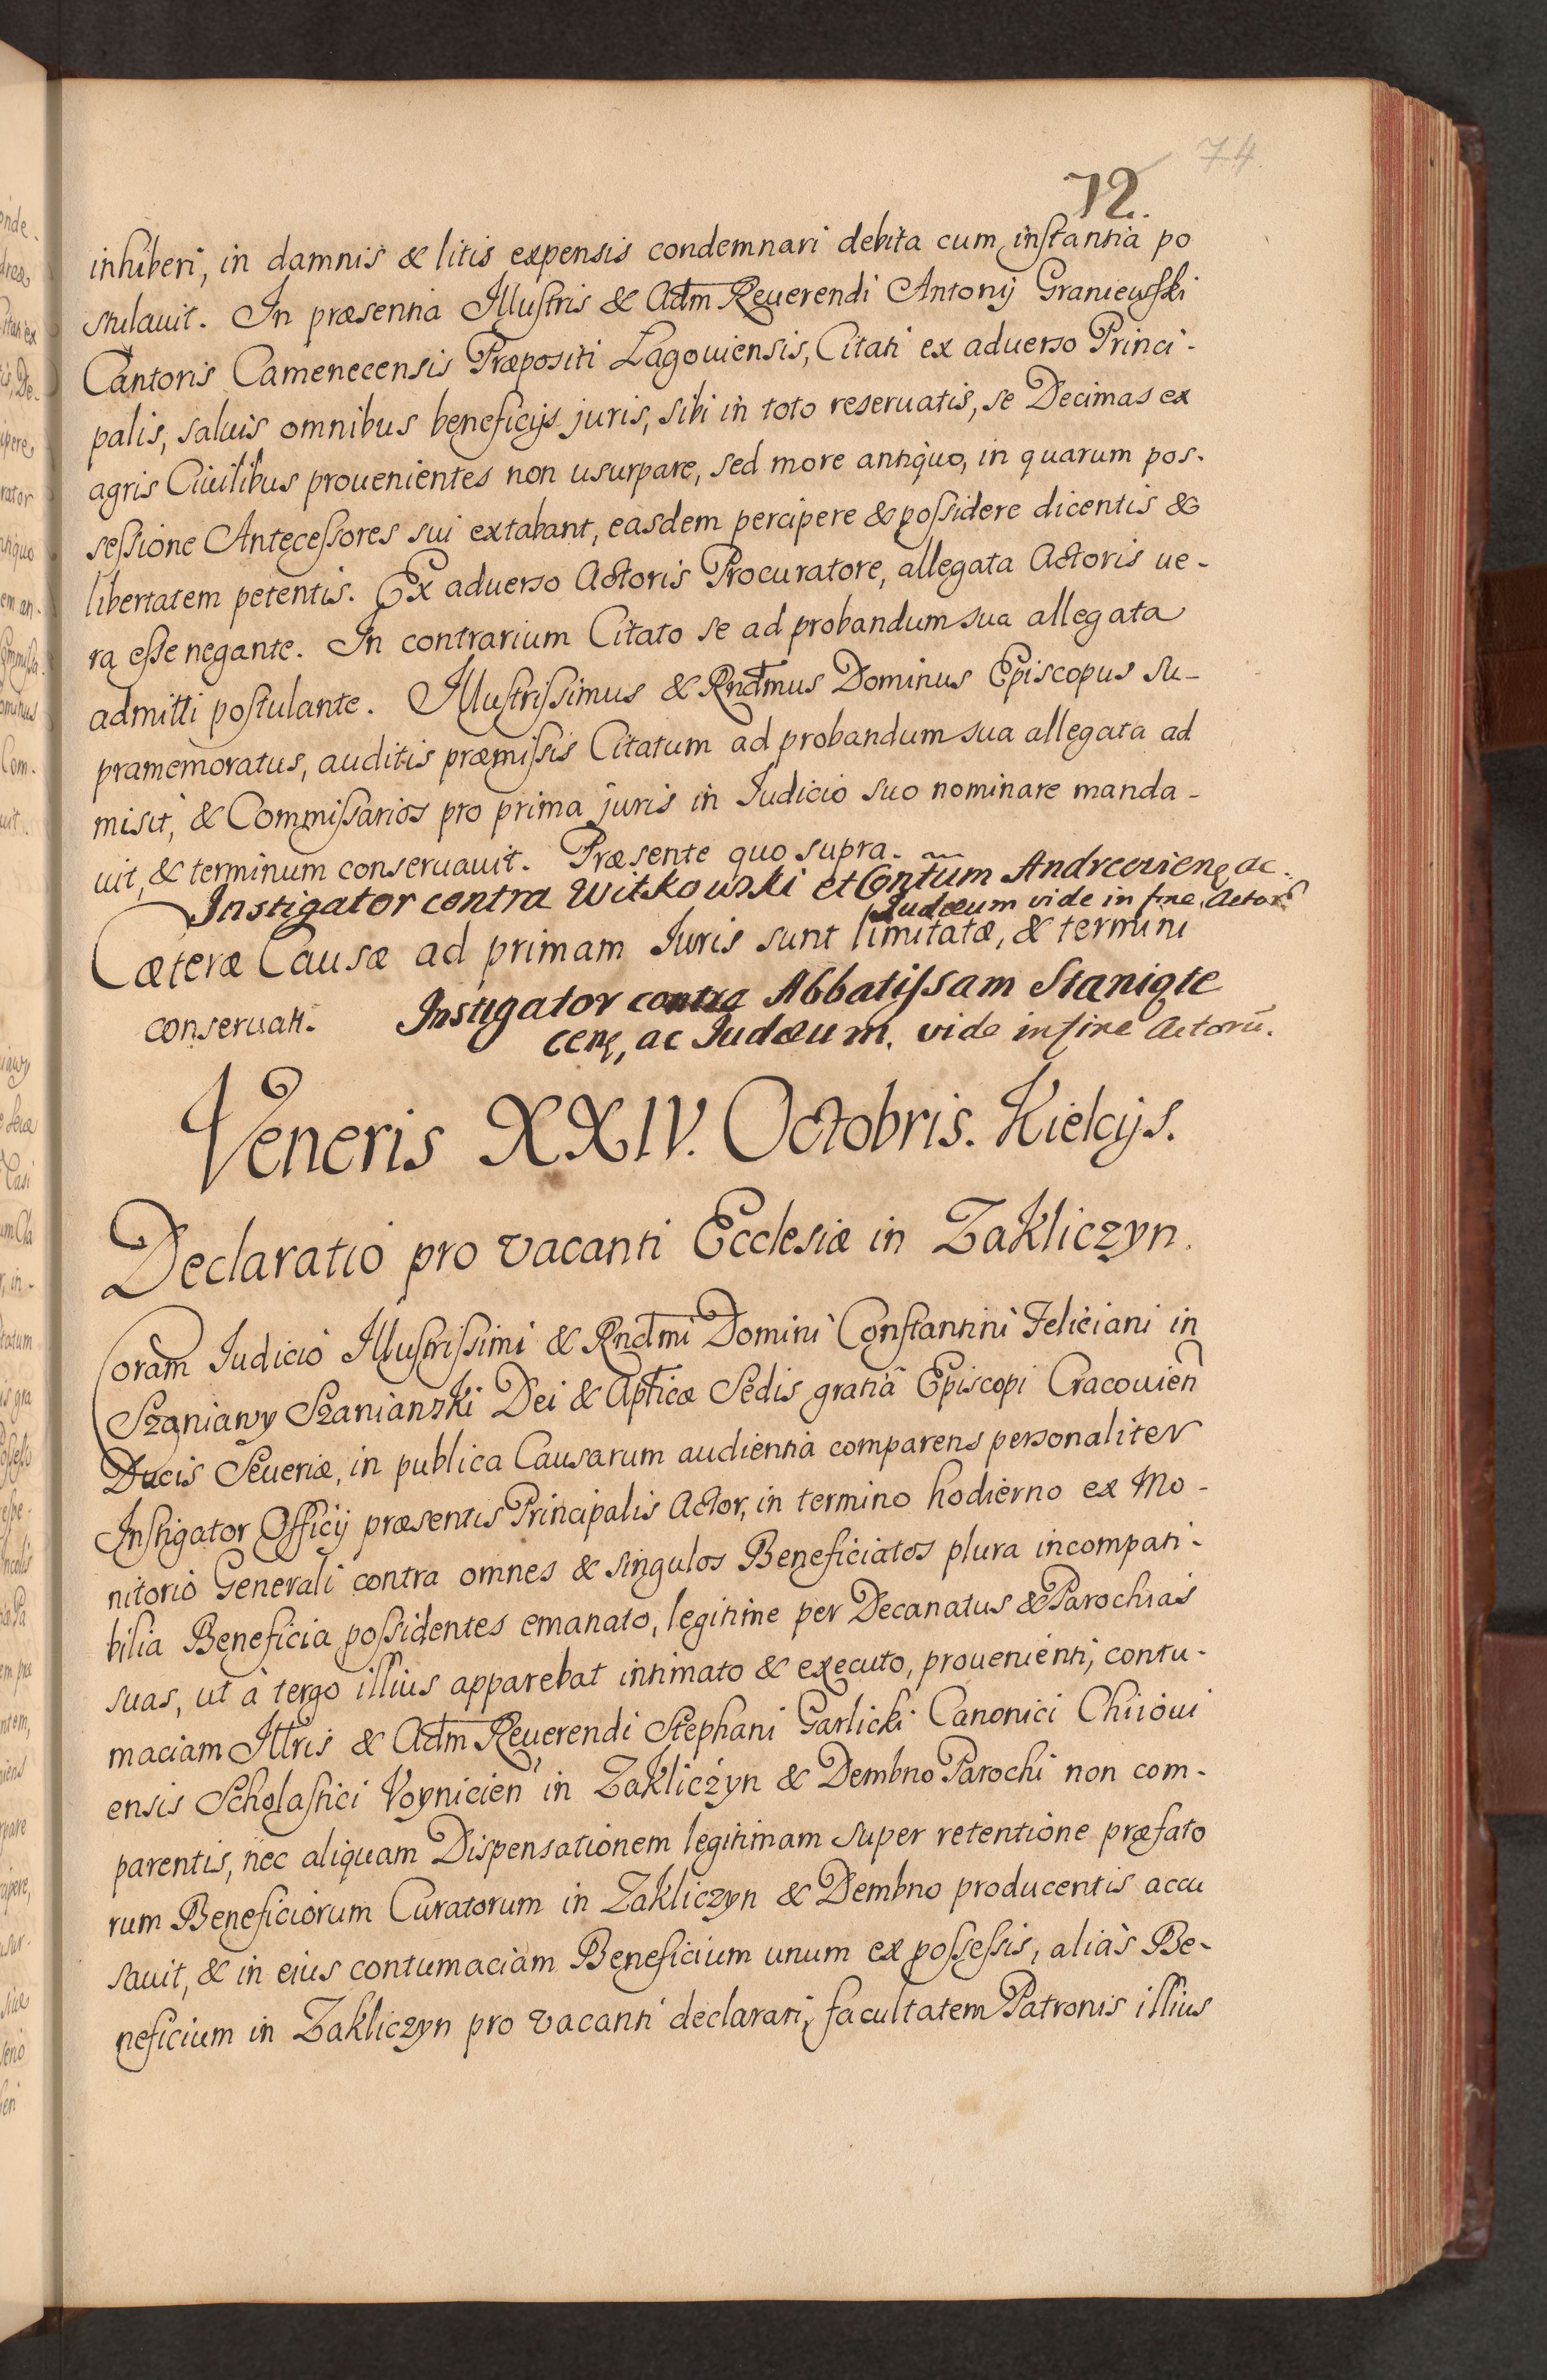 74.
72.
inhiberi, in damnis & litis expensis condemnari debita cum instantia po
stulauit. In præsentia Illustris & Adm̄ Reuerendi Antonij Graniewski
Cantoris Camenecensis Præpositi Lagouiensis, Citati ex aduerso Princi-
palis, saluis omnibus beneficijs juris, sibi in toto reseruatis, se Decimas ex
agris Ciuilibus prouenientes non usurpare, sed more antiquo, in quarum pos-
sessione Antecessores sui extabant, easdem percipere & possidere dicentis &
libertatem petentis. Ex aduerso Actoris Procuratore, allegata Actoris ue-
ra esse negante. In contrarium Citato se ad probandum sua allegata
admitti postulante. Illustrissimus & Rndm̄us Dominus Episcopus su-
pramemoratus, auditis præmissis Citatum ad probandum sua allegata ad
misit, & Commissarios pro prima juris in Iudicio suo nominare manda-
uit, & terminum conseruauit. Præsente quo supra.
Instigator contra Witkowski et Contum Andreouienę ac
Iudæum vide in fine Actorū
Cæteræ Causæ ad primam Iuris sunt limitatæ, & termini
conseruati. Instigator contra Abbatissam Staniąte
cenę, ac Iudæum. vide in fine Actorū.
Veneris XXIV. Octobris. Kielcijs.
Declaratio pro vacanti Ecclesiæ in Zakliczyn.
Coram Iudicio Illustrissimi & Rndm̄i Domini Constantini Feliciani in
Szaniawy Szanianski Dei & Apticæ Sedis gratiâ Episcopi Cracouien̄
Ducis Seueriæ, in publica Causarum audientia comparens personaliter
Instigator Officij præsentis Principalis Actor, in termino hodierno ex Mo-
nitorio Generali contra omnes & singulos Beneficiatos plura incompati-
bilia Beneficia possidentes emanato, legitime per Decanatus & Parochias
suas, ut à tergo illius apparebat intimato & executo, prouenienti, contu-
maciam Illris & Adm̄ Reuerendi Stephani Garlicki Canonici Chiioui
ensis Scholastici Voynicien̄ in Zakliczyn & Dembno Parochi non com-
parentis, nec aliquam Dispensationem legitimam super retentione præfato
rum Beneficiorum Curatorum in Zakliczyn & Dembno producentis accu
sauit, & in eius contumaciam Beneficium unum ex possessis, aliàs Be-
neficium in Zakliczyn pro vacanti declarari, facultatem Patronis illius